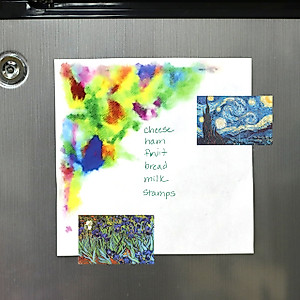 cheese
ham
fruit
bread
milk
stamps